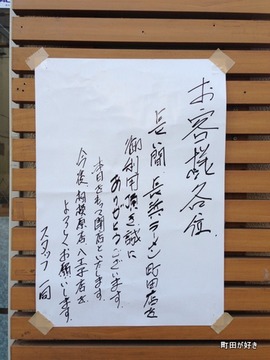 お客様各位
長い間 長浜ラーメン町田店を
御利用頂き誠に
ありがとうございます。
本日をもって閉店といたします。
今後相模原店八王子店を
よろしくお願いします。
スタッフ一同
町田が好き